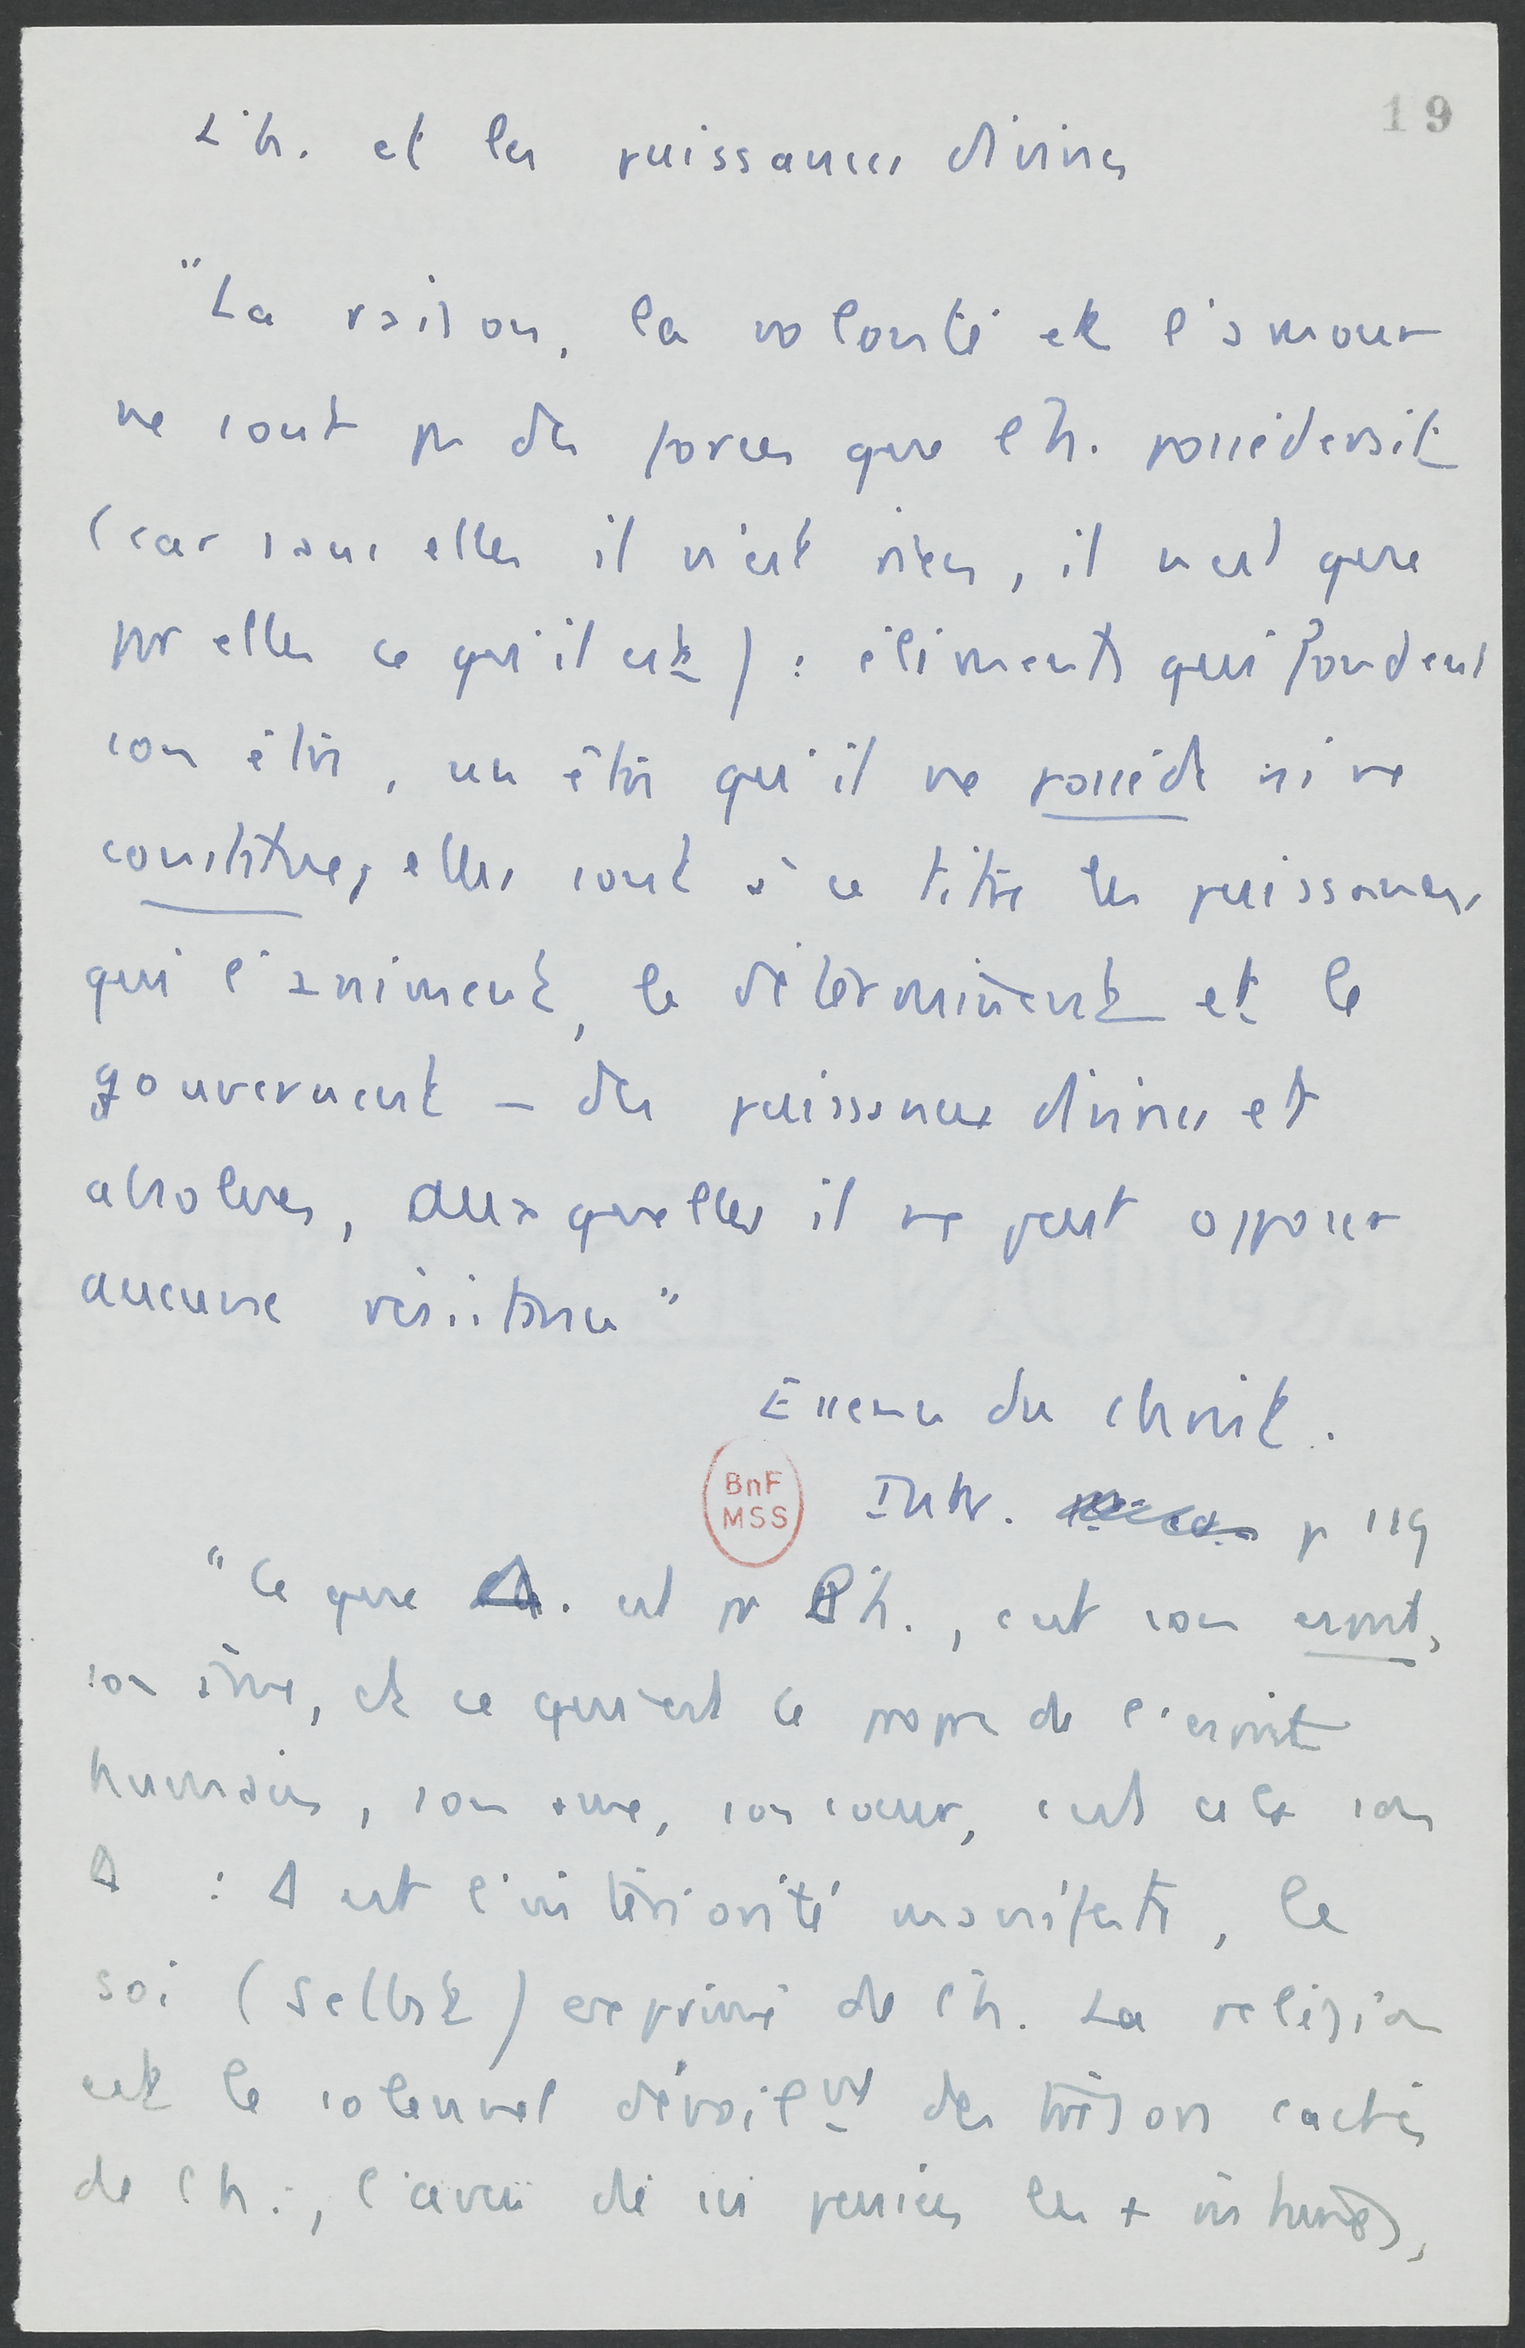 19
L'h. et les puissances divines
"La raison, la volonté et l'amour
ne sont pas des forces que l'h. possèderait
(car sans elles il n'est rien, il n'est que
par elles ce qu'il est) : éléments qui fondent
son être, un être qu'il ne possède ni ne
constitue, elles sont à ce titre les puissances
qui l'animent, le déterminent et le
gouvernent – des puissances divines et
absolues, auxquelles il ne peut opposer
aucune résistance"
Essence du Christ.
Intr. p 119
BnF
MSS
"Ce que Δ. est pr l'h., c'est son esprit,
son âme, et ce qui est le propre de l'esprit
humain, son âme, son cœur, c'est cela son
Δ : Δ est l'intériorité manifeste, le
soi (Selbst) exprimé de l'h. La religion
est le solennel dévoilmt des trésors cachés
de l'h., l'aveu de ses pensées les + intimes,